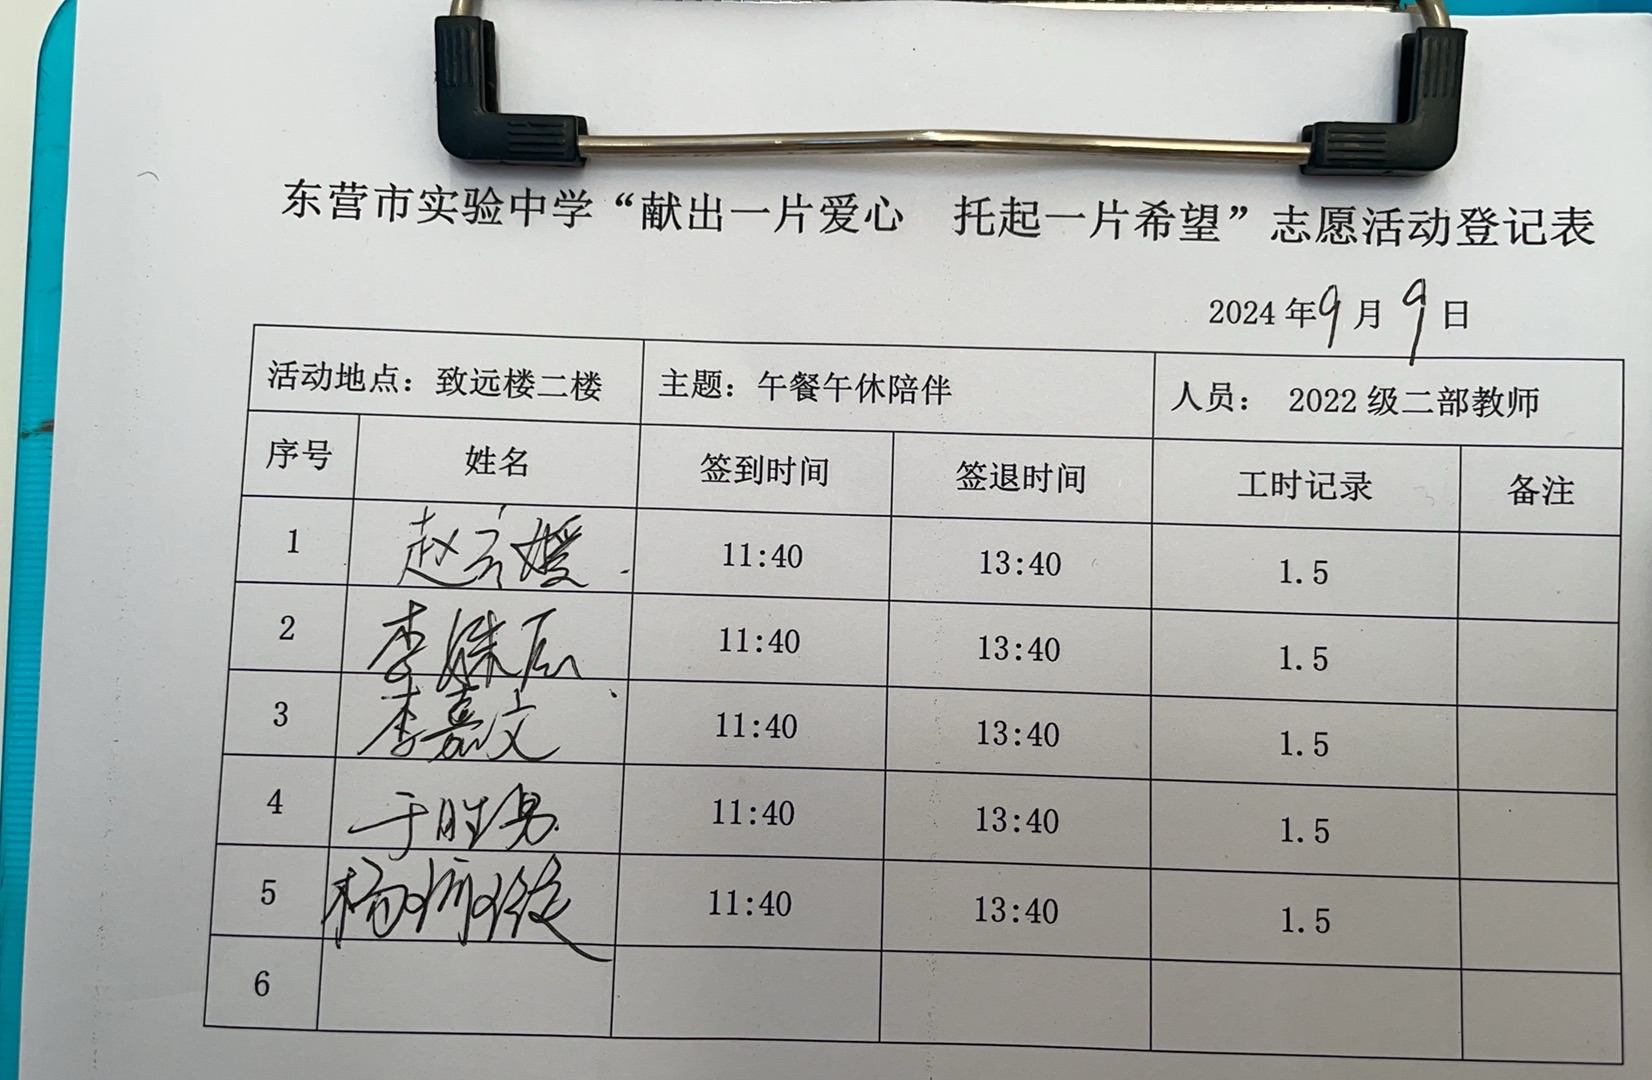 东营市实验中学“献出一片爱心 托起一片希望”志愿活动登记表
2024年9月9日
活动地点：致远楼二楼 主题：午餐午休陪伴 人员： 2022级二部教师
序号 姓名 签到时间 签退时间 工时记录 备注
1 赵云媛 11:40 13:40 1.5
2 李 11:40 13:40 1.5
3 李嘉文 11:40 13:40 1.5
4 于胜男 11:40 13:40 1.5
5 杨 11:40 13:40 1.5
6